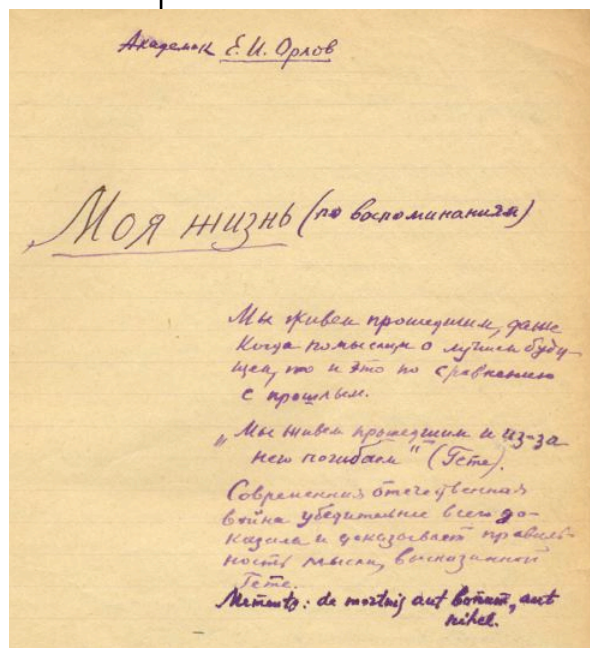 Академик Е.И. Орлов
Моя жизнь (по воспоминаниям)
Мы живем прошедшим, даже
когда помыслим о лучшем буду-
щем, то и это по сравнению
с прошлым.
„Мы живем прошедшим и из-за
него погибаем" (Гете).
Современная отечественная
война убедительнее всего до-
казала и доказывает правиль-
ность мысли, высказанной
Гете.
Memento: de mortuis aut bonum, aut
nihel.